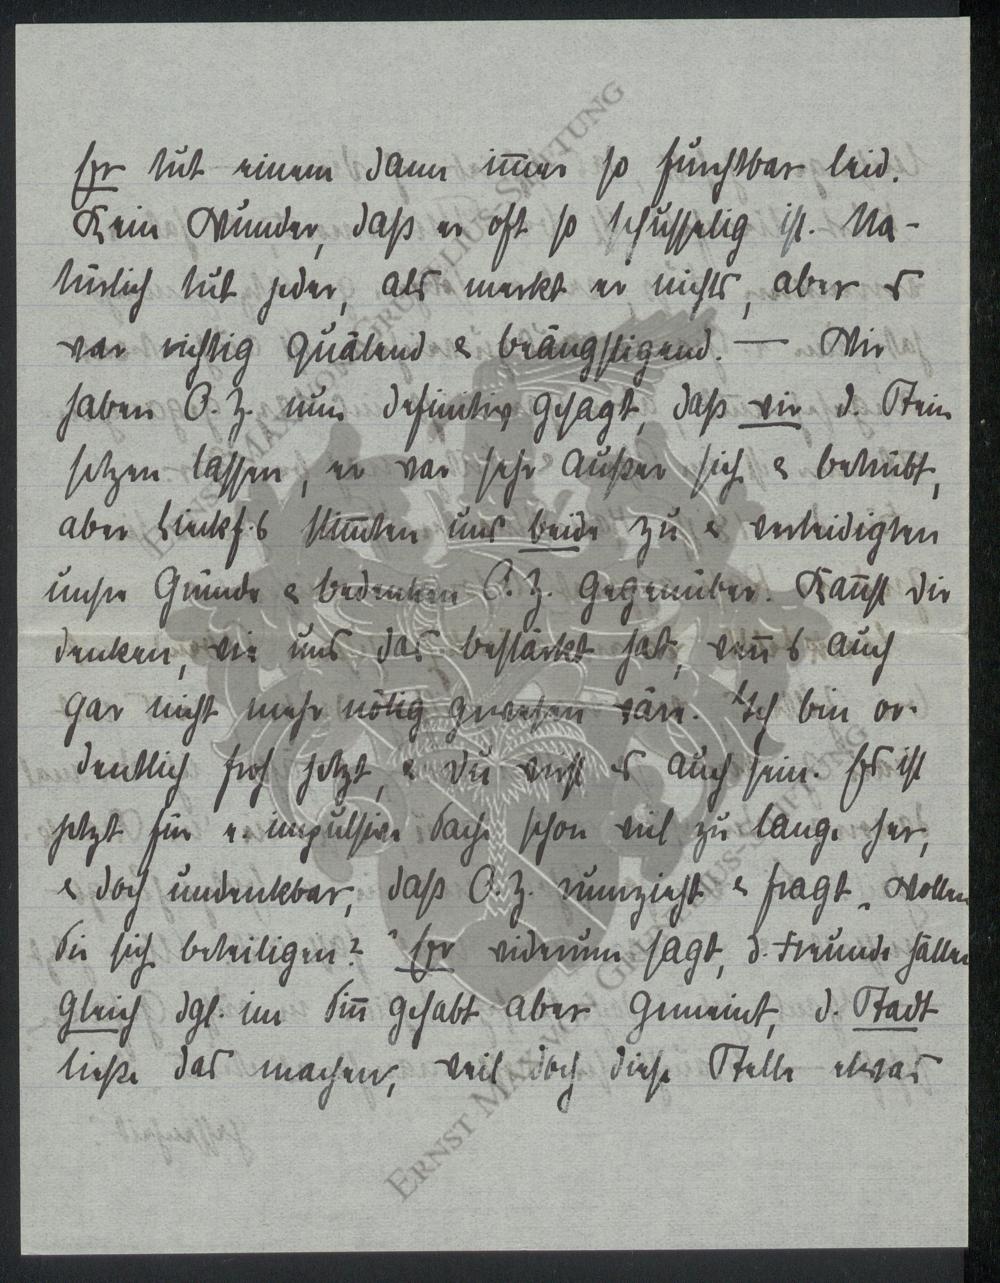 Er tut einem dann im̄er so furchtbar leid.
Kein Wunder, daß er oft so schusselig ist. Na-
türlich tut jeder, als merkt er nichts, aber es
war richtig quälend & beängstigend. — Wir
haben O. Z. nun definitiv gesagt, daß wir d. Stein
setzen lassen, er war sehr außer sich & betrübt,
aber stim̄ten uns beide zu & verteidigten
unsre Gründe & bedenken O. Z. gegenüber. Kan̄st Dir
denken, wie uns das bestärkt hat, wen̄s auch
gar nicht mehr nötig gewesen wäre. Ich bin or-
dentlich froh jetzt, & Du wirst es auch sein. Es ist
jetzt für e. impulsive Sache schon viel zu lange her,
& doch undenkbar, daß O. Z. rumzieht & fragt „Wollen
Sie sich beteiligen?" Er wiederum sagt, d. Freunde hätten
gleich dgl. im Sin̄ gehabt aber gemeint, d. Stadt
ließe das machen, weil doch diese Stelle etwas
ERNST MAX VON GRUNELIUS-STIFTUNG
ERNST MAX VON GRUNELIUS-STIFTUNG